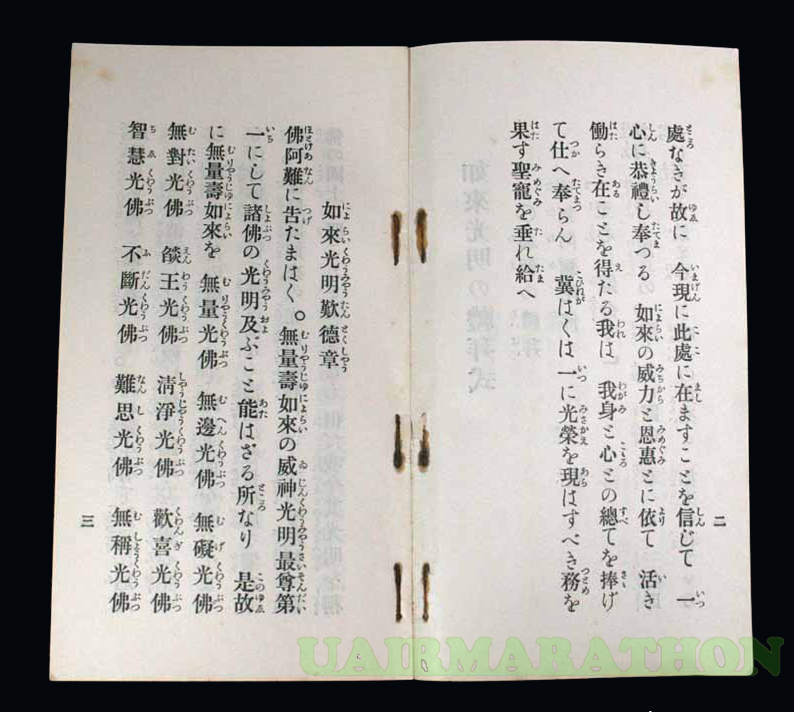 處なきが故に 今現に此處に在ますことを信じて 一
心に恭禮し奉つる 如來の威力と恩惠とに依て 活き
働らき在ことを得たる我は 我身と心との總てを捧げ
て仕へ奉らん 冀はくは 一に光榮を現はすべき務を
果す聖寵を垂れ給へ
二
如來光明歎德章
佛阿難に吿たまはく。無量壽如來の威神光明最尊第
一にして諸佛の光明及ぶこと能はざる所なり 是故
に無量壽如來を 無量光佛 無邊光佛 無礙光佛
無對光佛 燄王光佛 淸淨光佛 歡喜光佛
智慧光佛 不斷光佛 難思光佛 無稱光佛
三
UAIRMARATHON